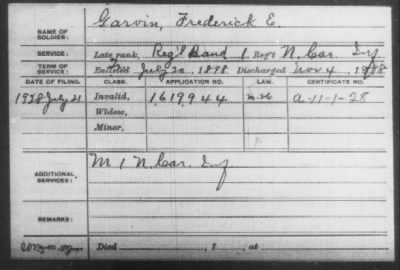 NAME OF SOLDIER: Garvin, Frederick E.
SERVICE: Late rank, Reg'l Band 1 Reg't N. Car. Inf
TERM OF SERVICE: Enlisted July 20, 1898 Discharged Nov 4, 1898
DATE OF FILING. CLASS. APPLICATION NO. LAW. CERTIFICATE NO.
1928 July 21 Invalid, 1,619,944 A-11-1-28
Widow,
Minor,
ADDITIONAL SERVICES: M 1 N. Car. Inf
REMARKS:
Died , 1 , at